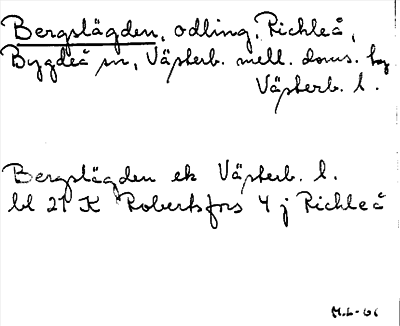 Bergslägden, odling, Richleå,
Bygdeå sn, Västerb. mell. doms. hg
Västerb. l.
Bergslägden ek Västerb. l.
bl 21 K Robertsfors 4 j Richleå
M.L-61